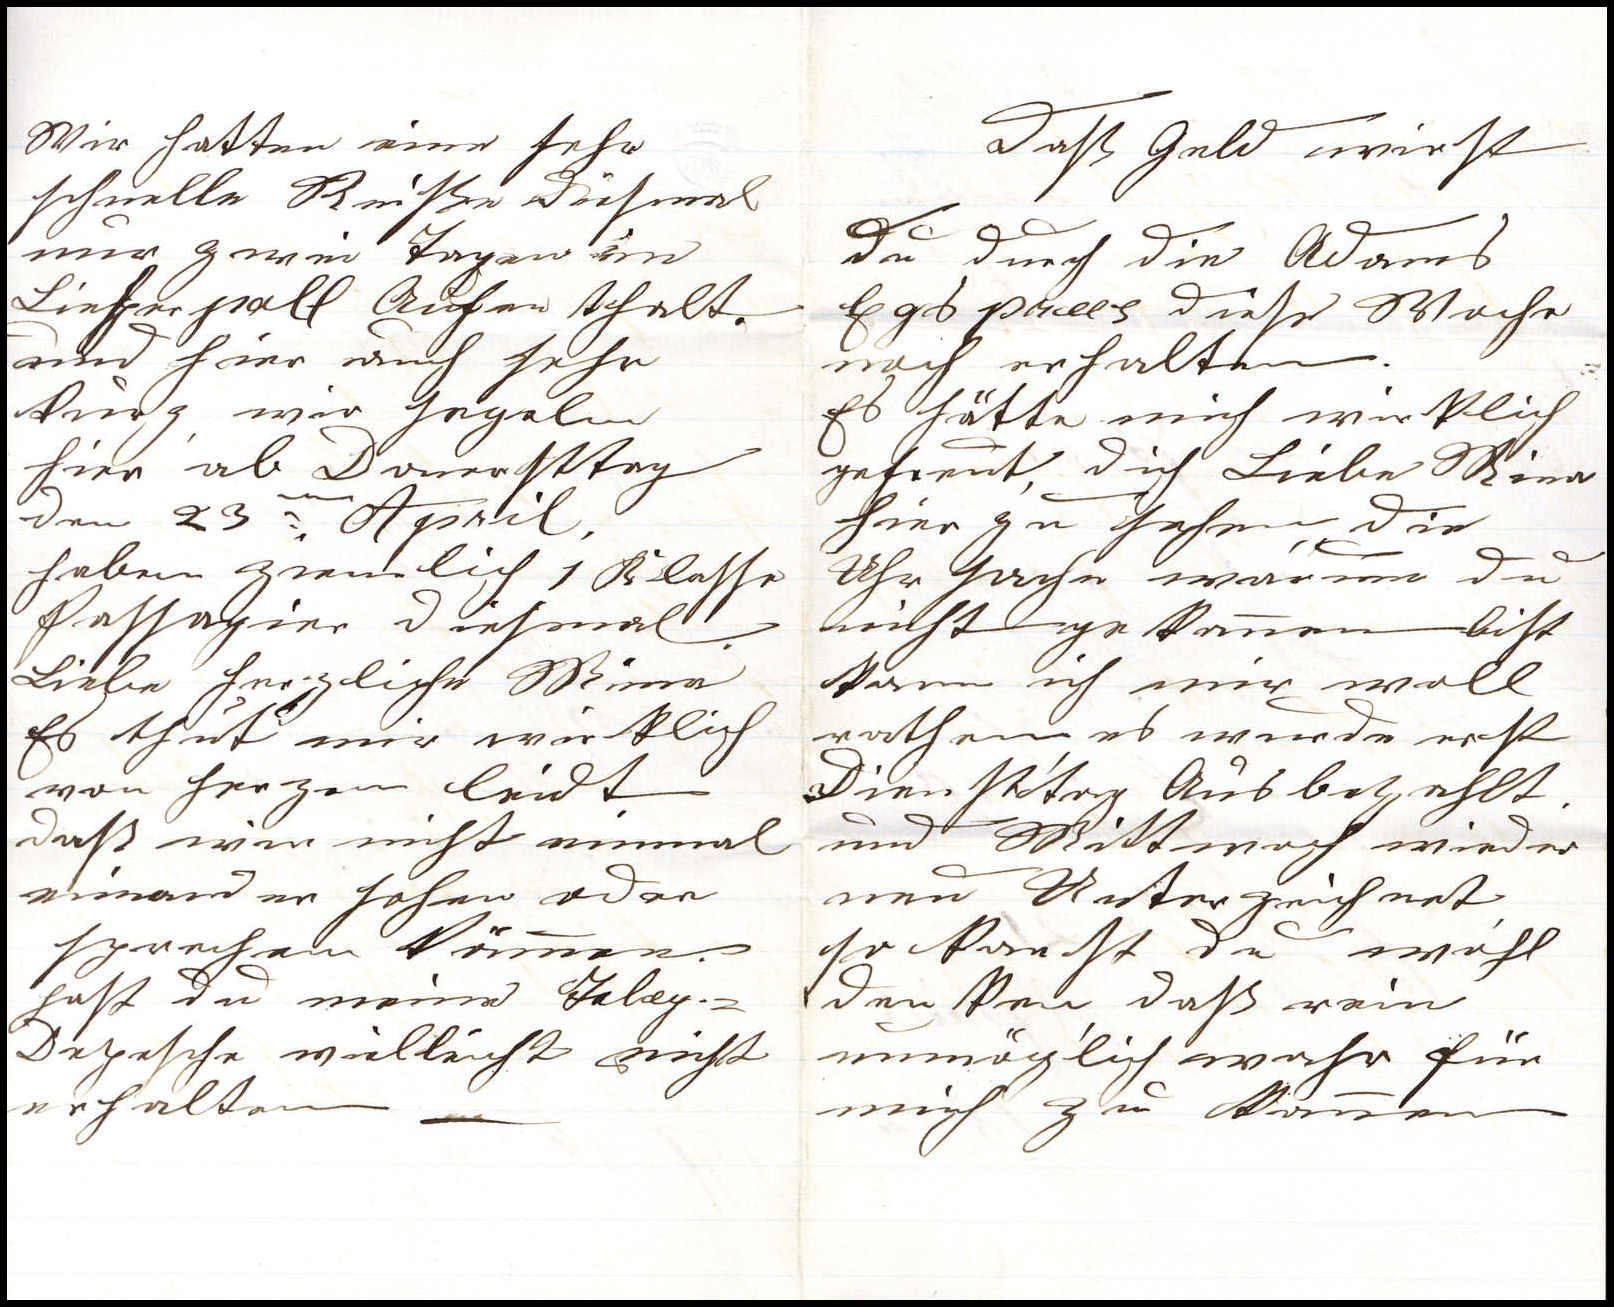 Wir hatten eine sehr
schnelle Reiße Diesmal
nur zwei Tagen in
Lieferpoll Aufenthalt.
und hier auch sehr
kurz, wir segeln
hier ab Donerstag
den 23ten April,
haben ziemlich 1 Klasse
Passagier diesmal.
Liebe herzliche Mina
Es thut mir wirklich
von herzen leidt
daß wir nicht einmal
einander sehen oder
sprechen können.
hast du meine Teleg.=
Depesche vielleicht nicht
erhalten —
Daß Geld wirst
Du durch die Adams
Egspress diese Woche
noch erhalten.
Es hätte mich wirklich
gefreut, dich Liebe Mina
hier zu sehen, die
Uhrsache warum du
nicht gekommen bist
kann ich mir woll
rathen es wurde erst
Dienstag Ausbezahlt.
und Mittwoch wieder
neu Unterzeichnet
so kanst du wohl
denken daß rein
unmöglich wahr für
mich zu kommen